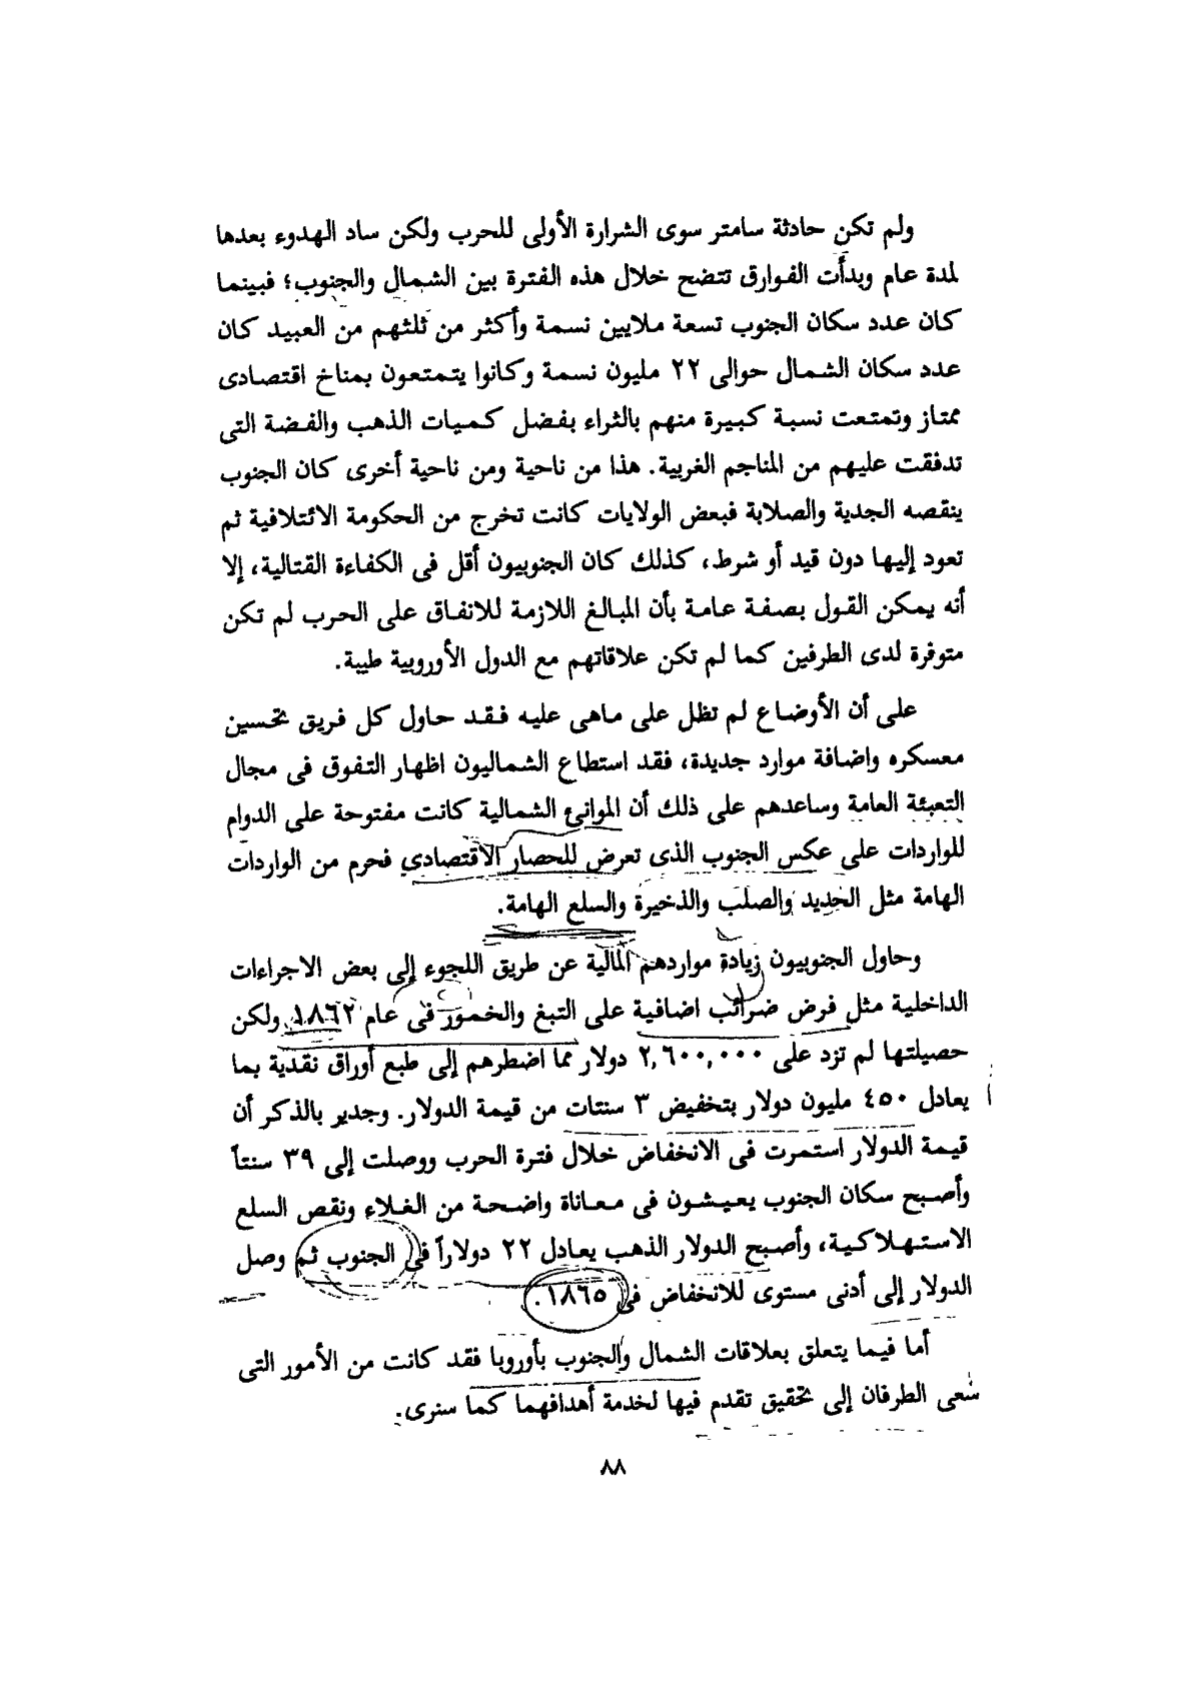 ولم تكن حادثة سامتر سوى الشرارة الأولى للحرب ولكن ساد الهدوء بعدها
لمدة عام وبدأت الفوارق تتضح خلال هذه الفترة بين الشمال والجنوب؛ فبينما
كان عدد سكان الجنوب تسعة ملايين نسمة وأكثر من ثلثهم من العبيد كان
عدد سكان الشمال حوالى ٢٢ مليون نسمة وكانوا يتمتعون بمناخ اقتصادى
ممتاز وتمتعت نسبة كبيرة منهم بالثراء بفضل كميات الذهب والفضة التى
تدفقت عليهم من المناجم الغربية. هذا من ناحية ومن ناحية أخرى كان الجنوب
ينقصه الجدية والصلابة فبعض الولايات كانت تخرج من الحكومة الائتلافية ثم
تعود إليها دون قيد أو شرط، كذلك كان الجنوبيون أقل فى الكفاءة القتالية، إلا
أنه يمكن القول بصفة عامة بأن المبالغ اللازمة للانفاق على الحرب لم تكن
متوفرة لدى الطرفين كما لم تكن علاقاتهم مع الدول الأوروبية طيبة.
على أن الأوضاع لم تظل على ماهى عليه فقد حاول كل فريق تحسين
معسكره واضافة موارد جديدة، فقد استطاع الشماليون اظهار التفوق فى مجال
التعبئة العامة وساعدهم على ذلك أن الموانئ الشمالية كانت مفتوحة على الدوام
للواردات على عكس الجنوب الذى تعرض للحصار الاقتصادى فحرم من الواردات
الهامة مثل الحديد والصلب والذخيرة والسلع الهامة.
وحاول الجنوبيون زيادة مواردهم المالية عن طريق اللجوء إلى بعض الاجراءات
الداخلية مثل فرض ضرائب اضافية على التبغ والخمور فى عام ١٨٦٢ ولكن
حصيلتها لم تزد على ٢,٦٠٠,٠٠٠ دولار مما اضطرهم إلى طبع أوراق نقدية بما
يعادل ٤٥٠ مليون دولار بتخفيض ٣ سنتات من قيمة الدولار. وجدير بالذكر أن
قيمة الدولار استمرت فى الانخفاض خلال فترة الحرب ووصلت إلى ٣٩ سنتاً
وأصبح سكان الجنوب يعيشون فى معاناة واضحة من الغلاء ونقص السلع
الاستهلاكية، وأصبح الدولار الذهب يعادل ٢٢ دولاراً فى الجنوب ثم وصل
الدولار إلى أدنى مستوى للانخفاض فى ١٨٦٥.
أما فيما يتعلق بعلاقات الشمال والجنوب بأوروبا فقد كانت من الأمور التى
سعى الطرفان إلى تحقيق تقدم فيها لخدمة أهدافهما كما سنرى.
٨٨